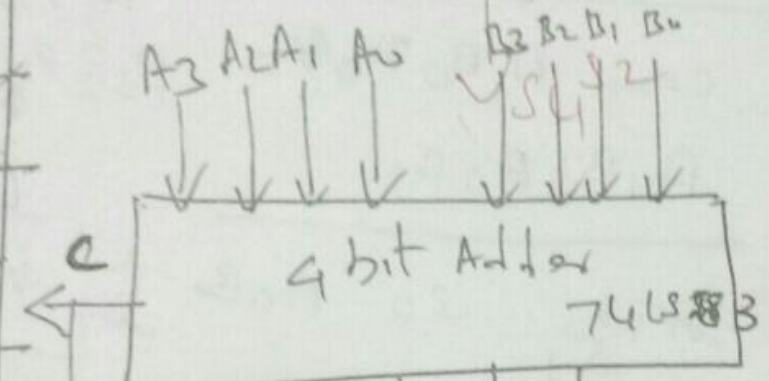 A3 A2 A1 A0 B3 B2 B1 B0
C
4 bit Adder
74LS83